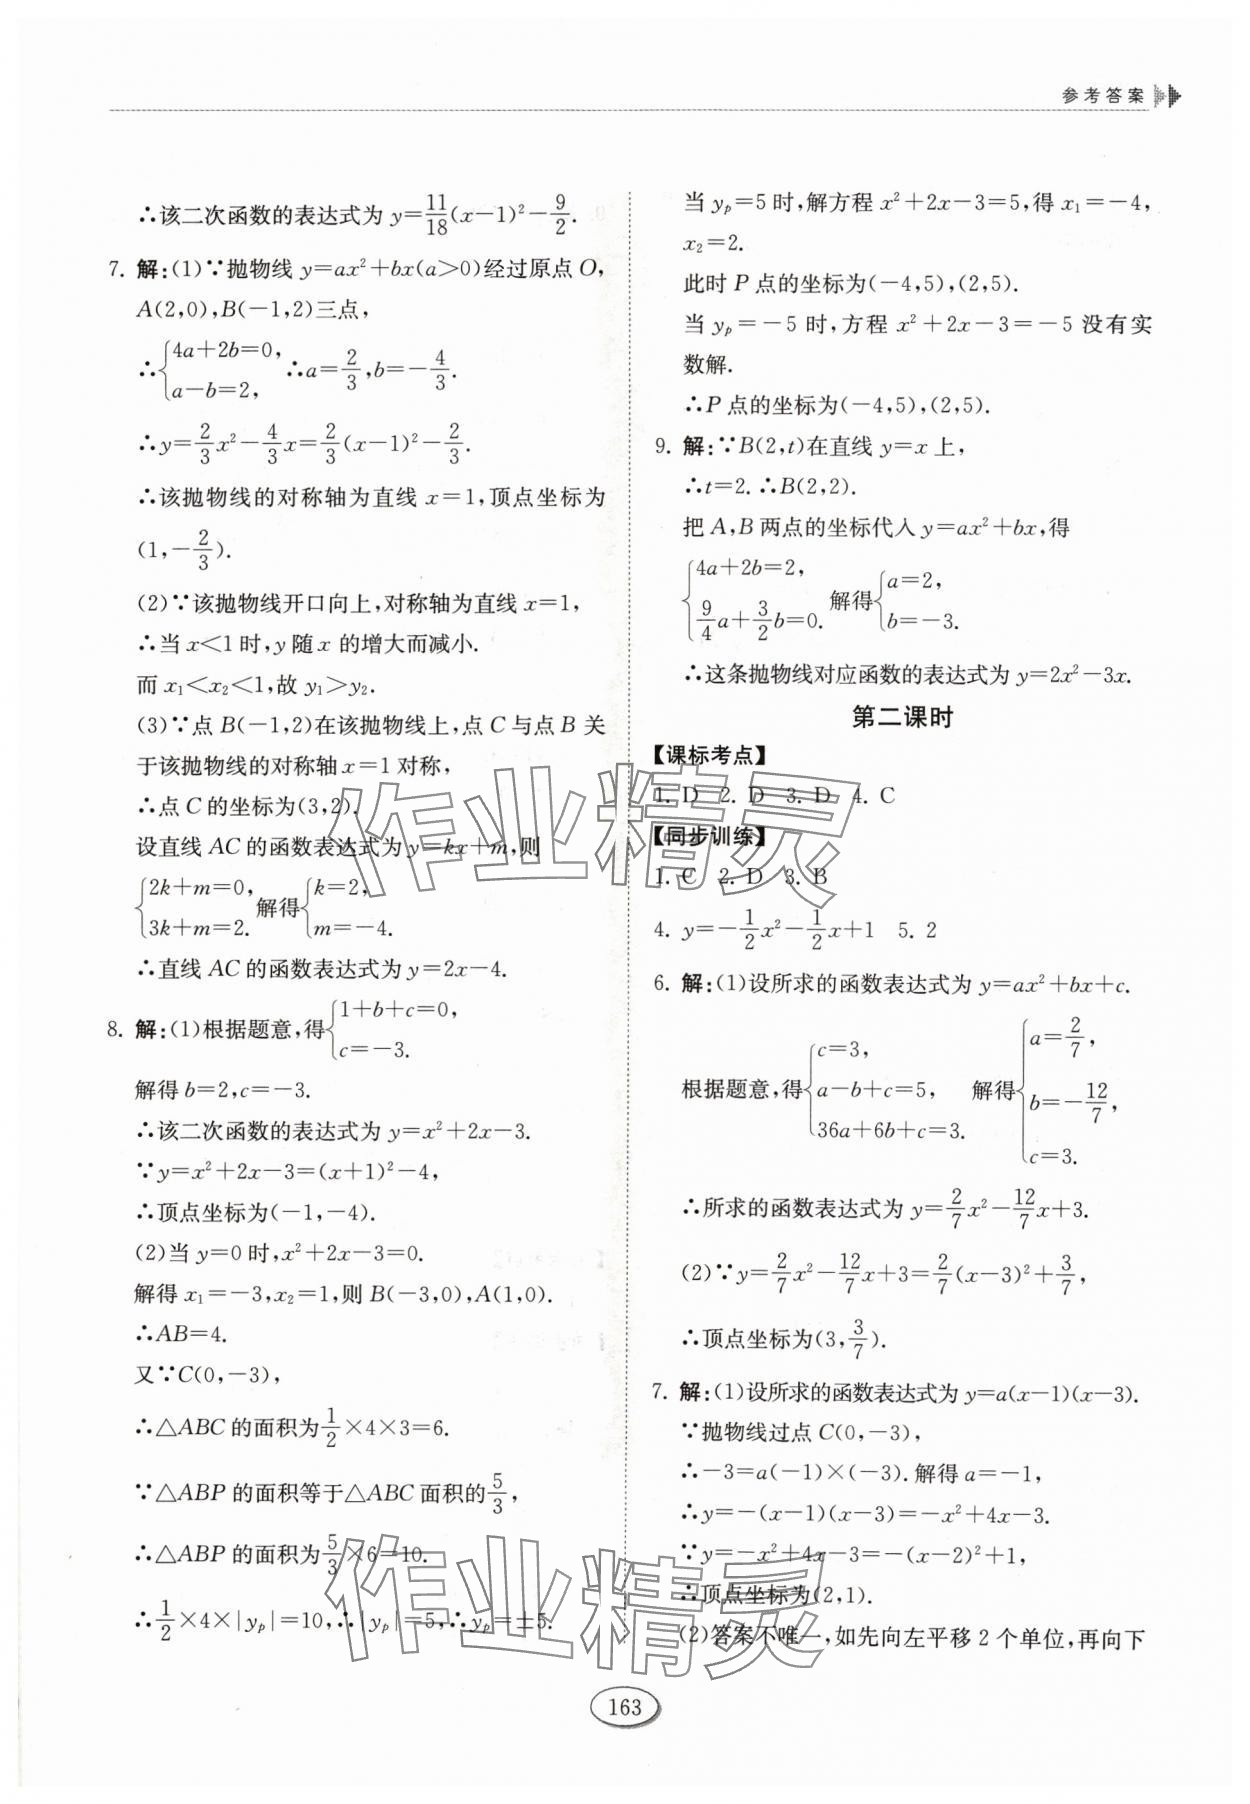 参考答案
∴该二次函数的表达式为 y=11/18(x-1)²-9/2.
7. 解:(1)∵抛物线 y=ax²+bx(a>0)经过原点 O,
A(2,0),B(-1,2)三点,
∴{4a+2b=0, a-b=2, ∴a=2/3,b=-4/3.
∴y=2/3x²-4/3x=2/3(x-1)²-2/3.
∴该抛物线的对称轴为直线 x=1,顶点坐标为
(1,-2/3).
(2)∵该抛物线开口向上,对称轴为直线 x=1,
∴当 x<1 时,y 随 x 的增大而减小.
而 x₁<x₂<1,故 y₁>y₂.
(3)∵点 B(-1,2)在该抛物线上,点 C 与点 B 关
于该抛物线的对称轴 x=1 对称,
∴点 C 的坐标为(3,2).
设直线 AC 的函数表达式为 y=kx+m,则
{2k+m=0, 3k+m=2. 解得{k=2, m=-4.
∴直线 AC 的函数表达式为 y=2x-4.
8. 解:(1)根据题意,得{1+b+c=0, c=-3.
解得 b=2,c=-3.
∴该二次函数的表达式为 y=x²+2x-3.
∵y=x²+2x-3=(x+1)²-4,
∴顶点坐标为(-1,-4).
(2)当 y=0 时,x²+2x-3=0.
解得 x₁=-3,x₂=1,则 B(-3,0),A(1,0).
∴AB=4.
又∵C(0,-3),
∴△ABC 的面积为1/2×4×3=6.
∵△ABP 的面积等于△ABC 面积的5/3,
∴△ABP 的面积为5/3×6=10.
∴1/2×4×|yₚ|=10,∴|yₚ|=5,∴yₚ=±5.
当 yₚ=5 时,解方程 x²+2x-3=5,得 x₁=-4,
x₂=2.
此时 P 点的坐标为(-4,5),(2,5).
当 yₚ=-5 时,方程 x²+2x-3=-5 没有实
数解.
∴P 点的坐标为(-4,5),(2,5).
9. 解:∵B(2,t)在直线 y=x 上,
∴t=2.∴B(2,2).
把 A,B 两点的坐标代入 y=ax²+bx,得
{4a+2b=2, 9/4a+3/2b=0. 解得{a=2, b=-3.
∴这条抛物线对应函数的表达式为 y=2x²-3x.
第二课时
【课标考点】
1. D 2. D 3. D 4. C
【同步训练】
1. C 2. D 3. B
4. y=-1/2x²-1/2x+1 5. 2
6. 解:(1)设所求的函数表达式为 y=ax²+bx+c.
根据题意,得{c=3, a-b+c=5, 36a+6b+c=3. 解得{a=2/7, b=-12/7, c=3.
∴所求的函数表达式为 y=2/7x²-12/7x+3.
(2)∵y=2/7x²-12/7x+3=2/7(x-3)²+3/7,
∴顶点坐标为(3,3/7).
7. 解:(1)设所求的函数表达式为 y=a(x-1)(x-3).
∵抛物线过点 C(0,-3),
∴-3=a(-1)×(-3).解得 a=-1,
∴y=-(x-1)(x-3)=-x²+4x-3.
∵y=-x²+4x-3=-(x-2)²+1,
∴顶点坐标为(2,1).
(2)答案不唯一,如先向左平移 2 个单位,再向下
163
作业精灵
作业精灵